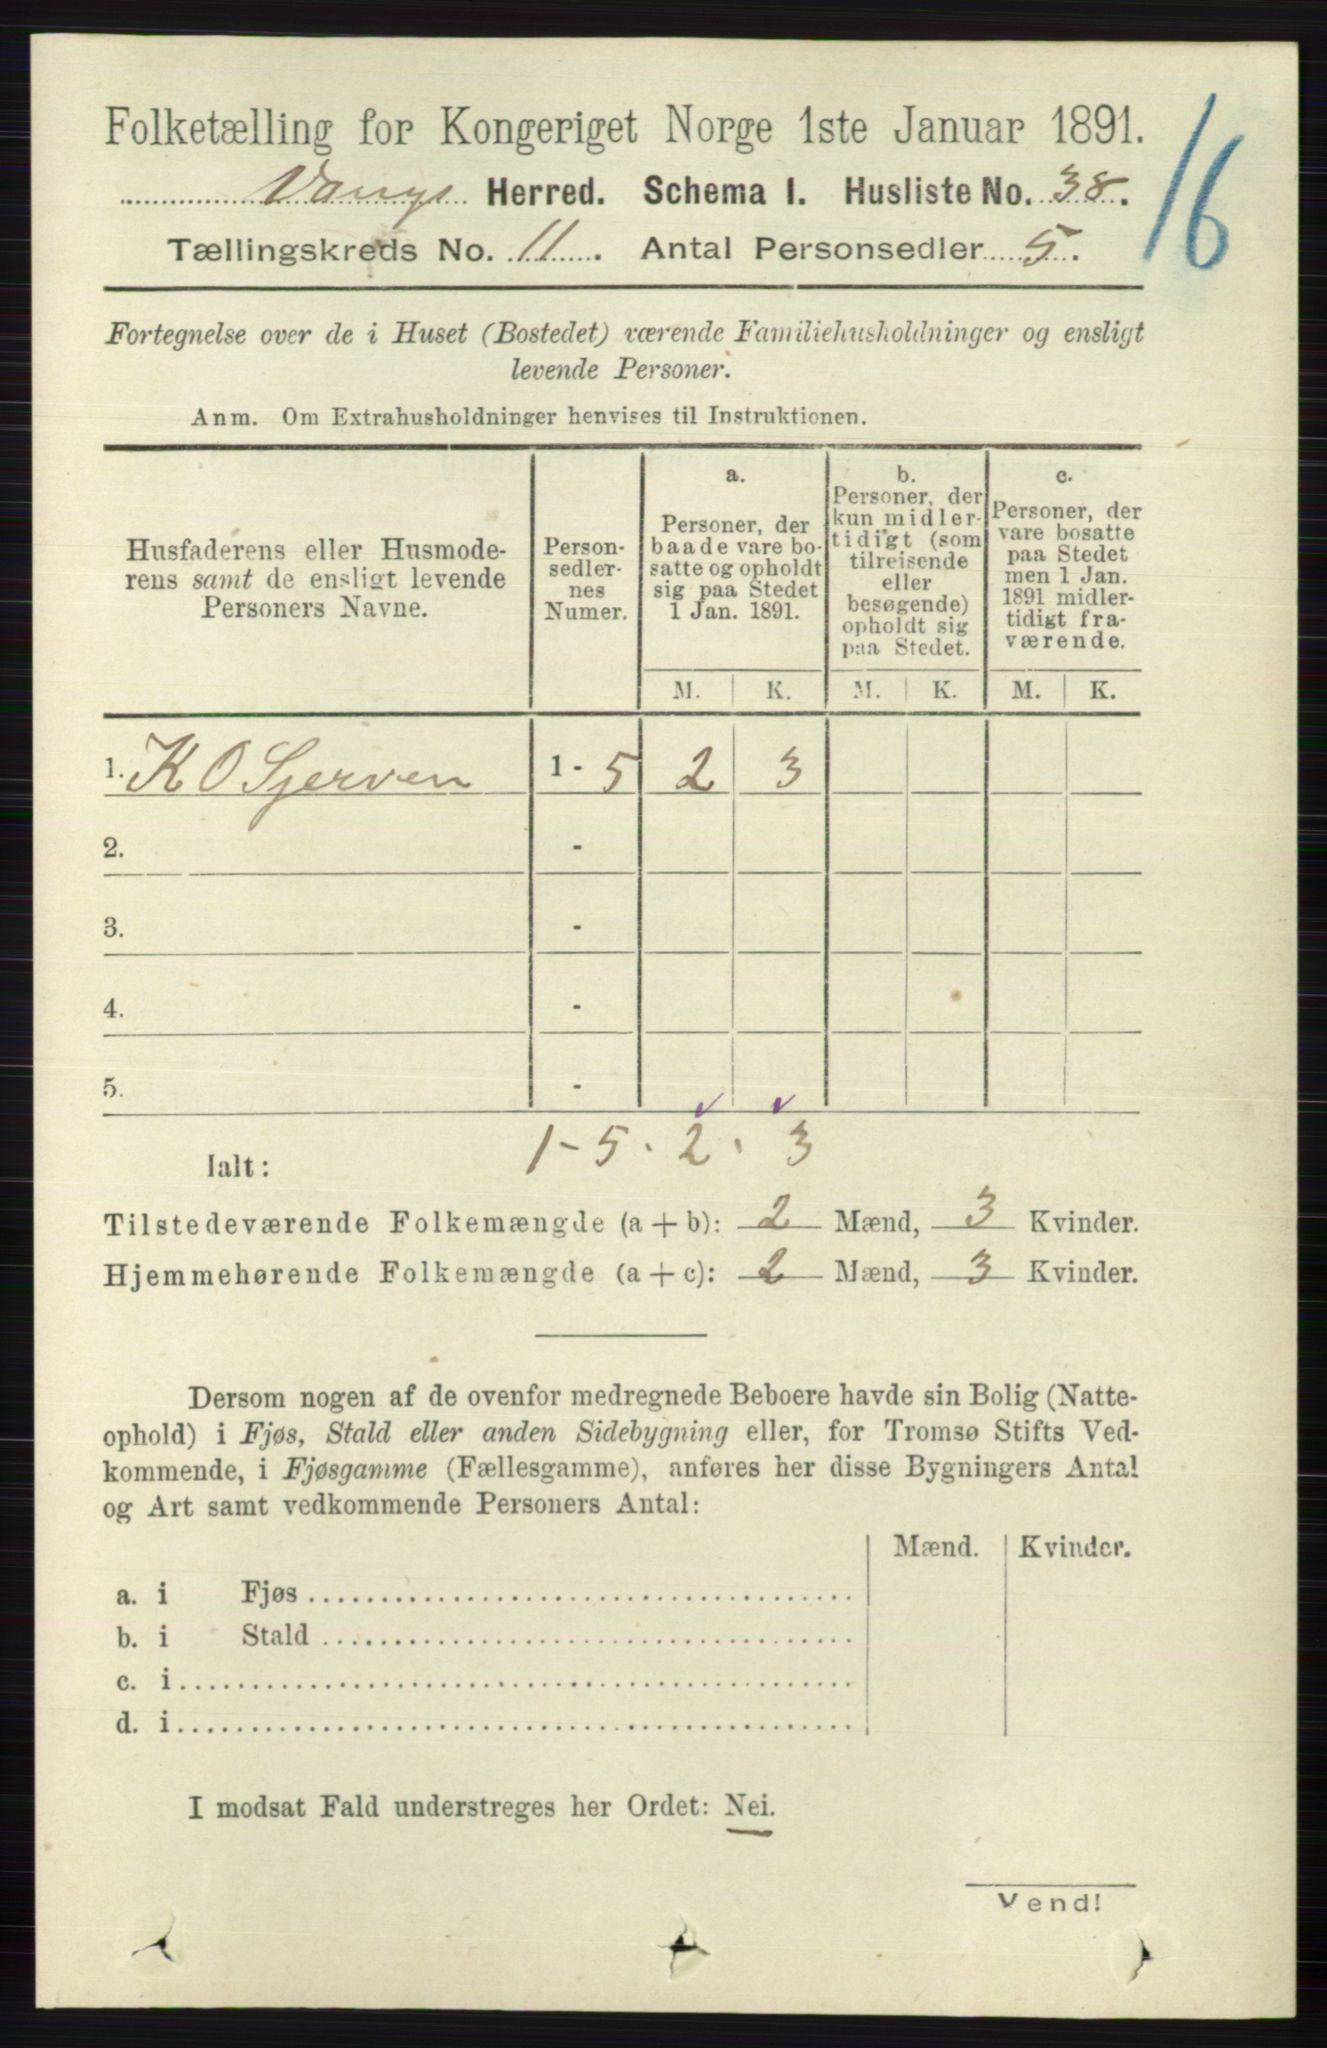 Folketælling for Kongeriget Norge 1ste Januar 1891.
16
Vangs Herred. Schema I. Husliste No. 38.
Tællingskreds No. 11. Antal Personsedler 5.
Fortegnelse over de i Huset (Bostedet) værende Familiehusholdninger og ensligt
levende Personer.
Anm. Om Extrahusholdninger henvises til Instruktionen.
Husfaderens eller Husmode-
rens samt de ensligt levende
Personers Navne.
Person-
sedler-
nes
Numer.
a.
Personer, der
baade vare bo-
satte og opholdt
sig paa Stedet
1 Jan. 1891.
b.
Personer, der
kun midler-
tidigt (som
tilreisende
eller
besøgende)
opholdt sig
paa Stedet.
c.
Personer, der
vare bosatte
paa Stedet
men 1 Jan.
1891 midler-
tidigt fra-
værende.
M. K. M. K. M. K.
1. K O Sjerven 1 - 5 2 3
2. -
3. -
4. -
5. -
Ialt: 1 - 5 . 2 . 3
Tilstedeværende Folkemængde (a + b): 2 Mænd, 3 Kvinder.
Hjemmehørende Folkemængde (a + c): 2 Mænd, 3 Kvinder.
Dersom nogen af de ovenfor medregnede Beboere havde sin Bolig (Natte-
ophold) i Fjøs, Stald eller anden Sidebygning eller, for Tromsø Stifts Ved-
kommende, i Fjøsgamme (Fællesgamme), anføres her disse Bygningers Antal
og Art samt vedkommende Personers Antal:
Mænd. Kvinder.
a. i Fjøs
b. i Stald
c. i
d. i
I modsat Fald understreges her Ordet: Nei.
Vend!